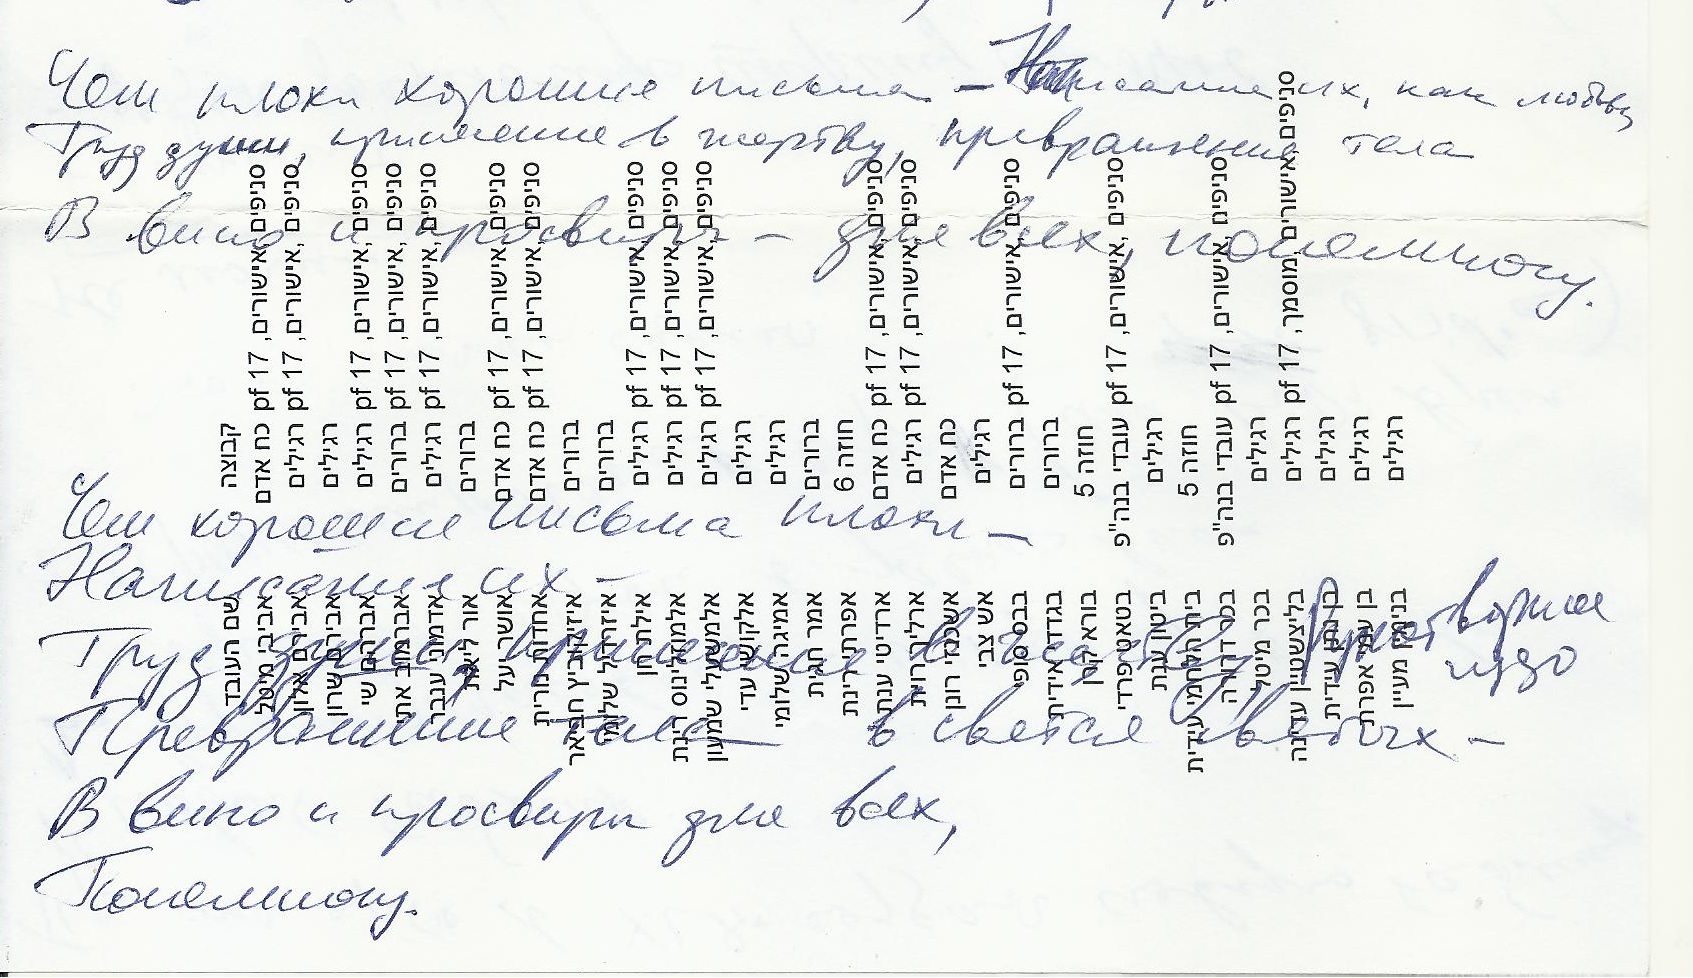 Чем плохи хорошие письма – Написание их, как любовь,
Труд души, принесение в жертву, превращение тела
В вино и просвиры – для всех, понемногу.
קבוצה
כח אדם pf 17 ,סניפים ,אישורים
רגילים pf 17 ,סניפים ,אישורים
רגילים
רגילים pf 17 ,סניפים ,אישורים
ברורים pf 17 ,סניפים ,אישורים
רגילים pf 17 ,סניפים ,אישורים
ברורים
כח אדם pf 17 ,סניפים ,אישורים
כח אדם pf 17 ,סניפים ,אישורים
ברורים
ברורים
רגילים pf 17 ,סניפים ,אישורים
רגילים pf 17 ,סניפים ,אישורים
רגילים pf 17 ,סניפים ,אישורים
רגילים
רגילים
ברורים
חוזה 6
כח אדם pf 17 ,סניפים ,אישורים
רגילים pf 17 ,סניפים ,אישורים
כח אדם
רגילים
ברורים pf 17 ,סניפים ,אישורים
ברורים
חוזה 5
עובדי בנה"פ pf 17 ,סניפים ,אישורים
רגילים
חוזה 5
עובדי בנה"פ pf 17 ,סניפים ,אישורים
רגילים
רגילים pf 17 ,סניפים ,אישורים ,מוסמך
רגילים
רגילים
רגילים
Чем хорошие письма плохи –
Написание их –
Труд души, принесение в жертву, чудо
Превращение тела в святых –
В вино и просвиры для всех,
Понемногу.
שם העובד
אביבי מיטל
אבירם אלון
אבירם שרון
אברהם שי
אברמוב אתי
אדמוני ענבר
אור ליאת
אושר יעל
אחדות נורית
איזיקוביץ חביאר
איזרזל שלומי
אילת חן
אלמוזלינוס רינת
אלמשעלי שמעון
אלקשי עדי
אמיגה שלומי
אמר חגית
אפרתי דלית
ארדיטי ענת
ארלי רוית
אשכנזי רונן
אש צבי
בבס סופי
בגדדי אירית
בורא לימן
בטאט פרדי
ביטון ענת
בכר דרורה
בכר מיטל
בליצשטיין עדינה
בן נתן עידית
בן עמי אפרת
בנימין מעיין